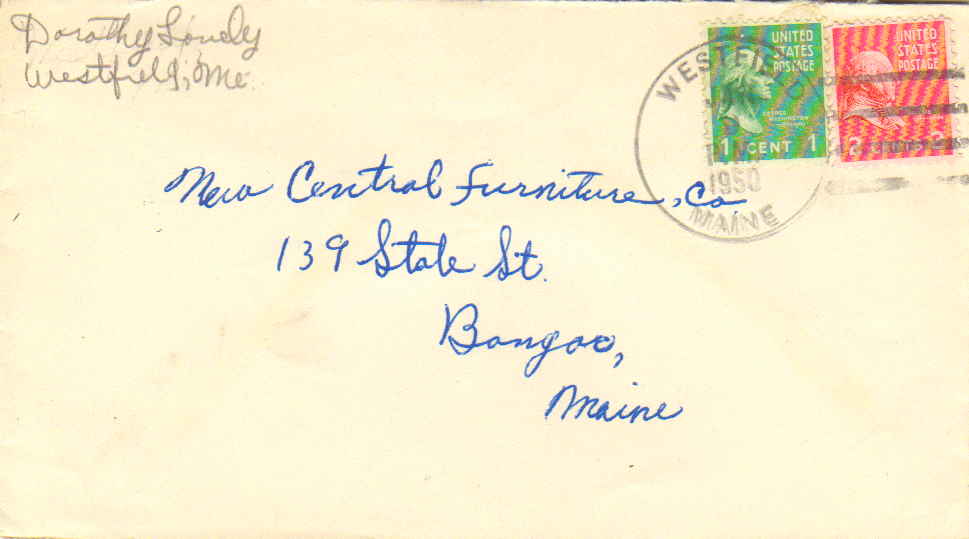 Dorothy Lovely
Westfield, Me.
UNITED
STATES
POSTAGE
GEORGE
WASHINGTON
1 CENT 1
UNITED
STATES
POSTAGE
2 CENTS 2
WESTFIELD
1950
MAINE
New Central Furniture, Co
139 State St.
Bangor,
Maine